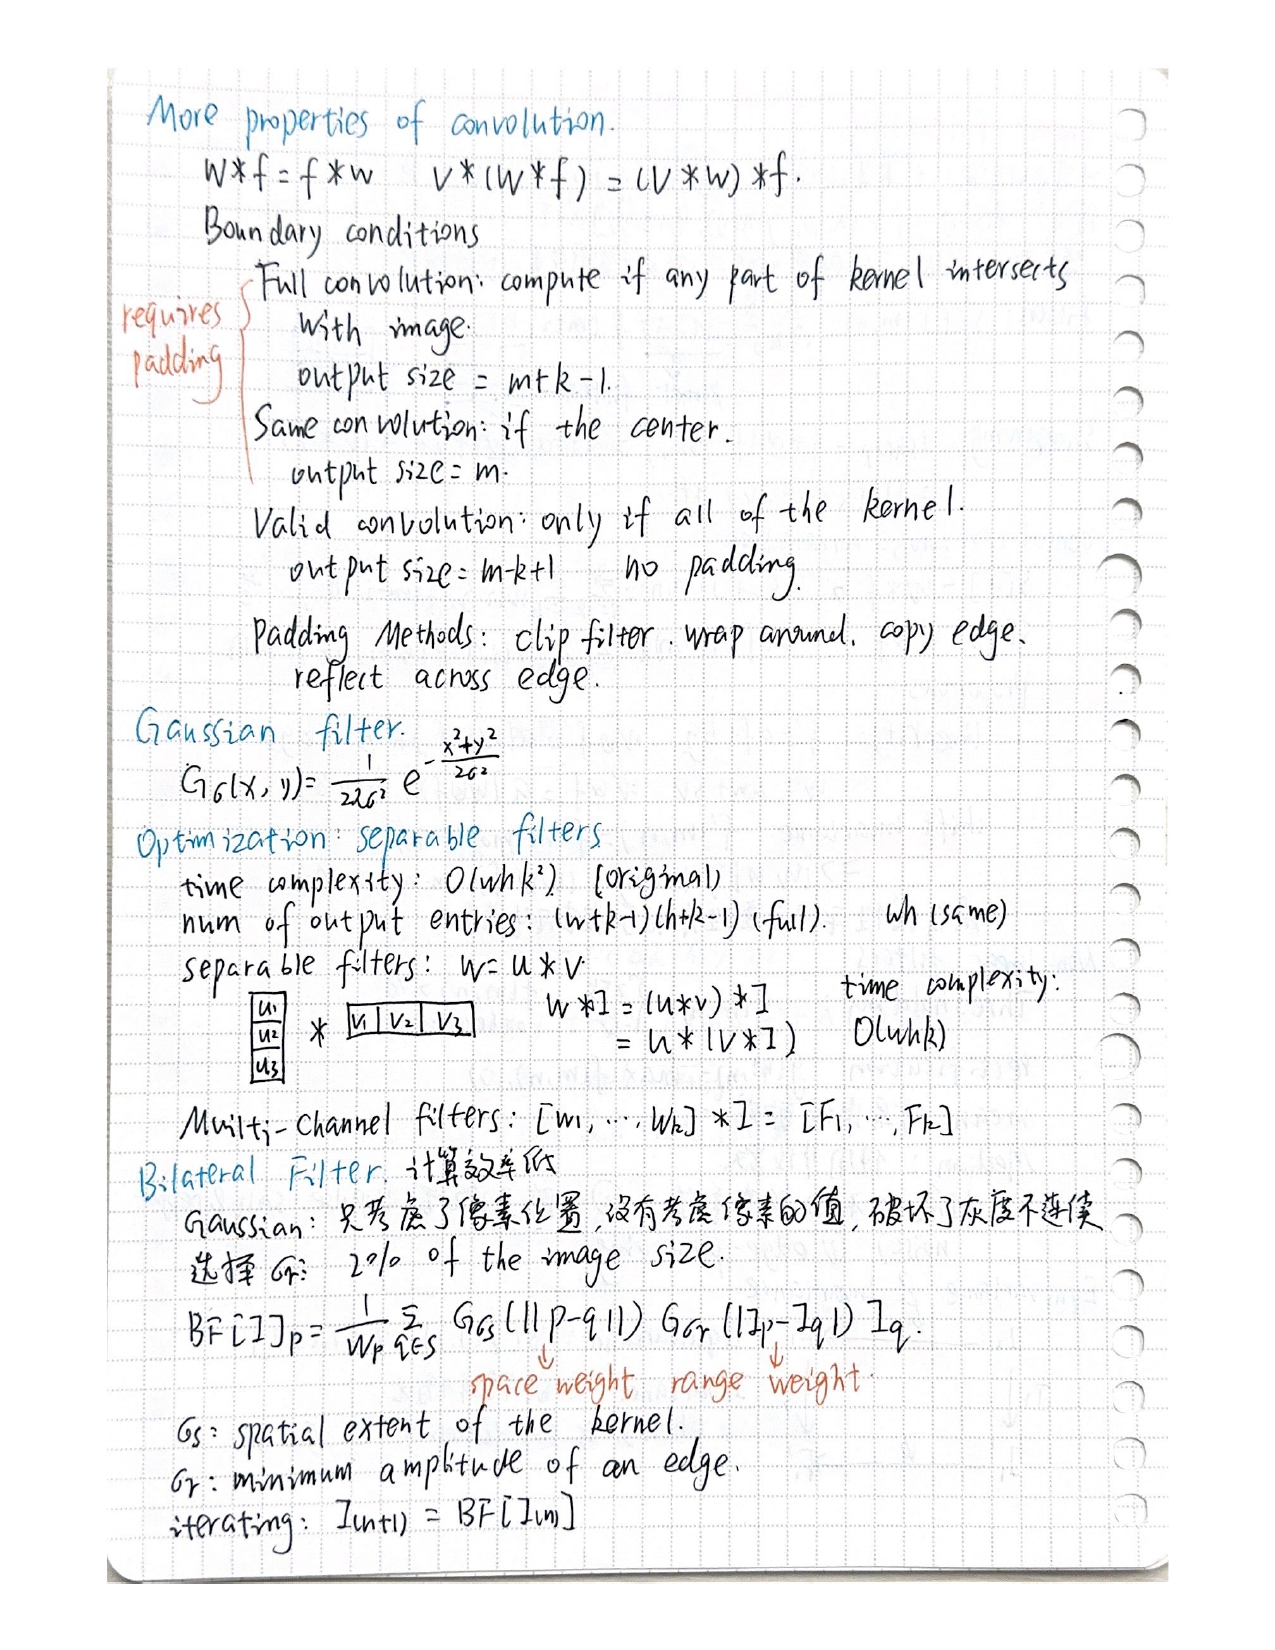 More properties of convolution.
W*f = f*w   V*(W*f) = (V*W)*f.
Boundary conditions
requires padding
Full convolution: compute if any part of kernel intersects
with image.
output size = m+k-1.
Same convolution: if the center.
output size = m.
Valid convolution: only if all of the kernel.
output size = m-k+1   no padding.
Padding Methods: clip filter. wrap around. copy edge.
reflect across edge.
Gaussian filter.
Gσ(x, y) = 1/(2πσ²) e^(-(x²+y²)/(2σ²))
Optimization: separable filters
time complexity: O(whk²) (original)
num of output entries: (w+k-1)(h+k-1) (full).   wh (same)
separable filters: W = u * v.
u1 u2 u3 * v1 v2 v3   W*I = (u*v)*I   time complexity:
= u*(v*I)   O(whk)
Muilti-Channel filters: [w1, ..., wk] * I = [F1, ..., Fk]
Bilateral Filter. 计算效率低
Gaussian: 只考虑了像素位置,没有考虑像素的值,破坏了灰度不连续
选择 σr: 2% of the image size.
BF[I]p = 1/Wp Σ q∈S Gσs(||p-q||) Gσr(|Ip-Iq|) Iq.
↓ ↓
space weight   range weight.
σs: spatial extent of the kernel.
σr: minimum amplitude of an edge.
iterating: I(n+1) = BF[I(n)]